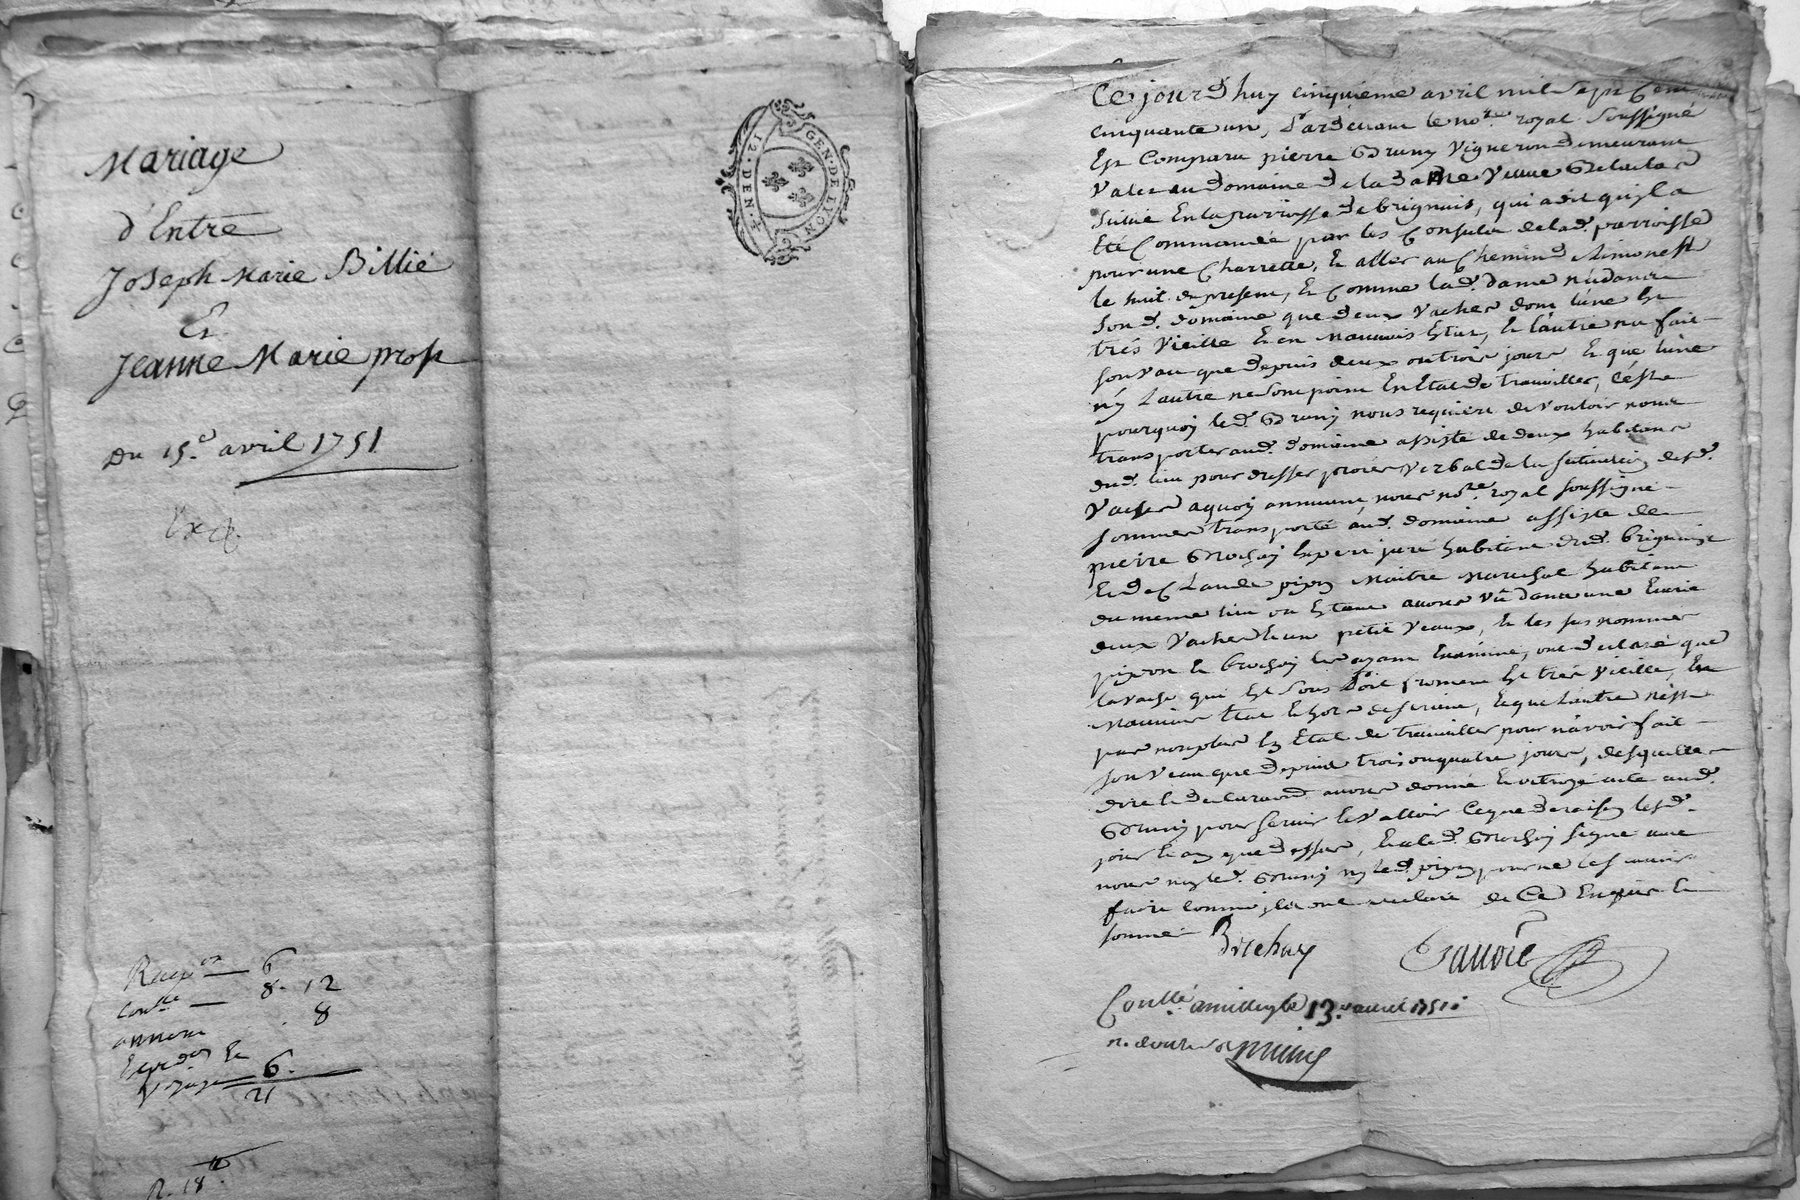 Mariage
d'Entre
Joseph Marie Billié
Et
Jeanne Marie prost
Du 15.e avril 1751
Exp.
Recepon 6
Conlle 8. 12
annexe 8
Expedon Et
Voyage 6.
21
R. 18
GEN. DE LYON
12. DEN. 4
Ce jourdhuy cinquieme avril mil sept Cent
cinquante un, Pardevant le nore royal soussigné
Est Comparu pierre Bruny Vigneron demeurant
Valet au domaine de la dame Veuve
Scitué En la parroisse de brignais, qui a dit quil a
Eté Commandé par les Consuls de lad. parroisse
pour une Charrette, Et aller au Chemin de Limonest
le huit du present, Et Comme lad. dame n'a dans
Sond. domaine que deux Vaches dont l'une Est
trés Vieille Et en Mauvais Etat, Et l'autre n'a fait
son Vau que depuis deux ou trois jours Et que l'une
ny L'autre ne sont point En Etat de travailler, C'est
pourquoy led. Bruny nous requiere de Vouloir nous
transporter aud. domaine assisté de deux habitans
dud. lieu pour dresser procés Verbal de la scituation desd.
Vaches aquoy annuant nous nore royal soussigné
sommes transporté aud. domaine assisté de
pierre Brochay Expert juré habitant dud. brignais
Et de Claude pizon Maitre Marechal habitant
du meme lieu ou Etant avons Vû dans une Ecurie
deux Vaches Et un petit Veaux, Et les sus nommés
pizon Et brochay les ayant Examiné, ont declaré que
la vache qui Est sous Poil froment Est trés Vieille, En
Mauvais Etat Et hors de service, Et que L'autre n'est
pas non plus En Etat de travailler pour n'avoir fait
son Veau que depuis trois ou quatre jours, desquelles
dire Et declaration avons donné Et octroyé acte aud.
Bruny pour servir Et Valloir Ce que de raison lesd.
jour Et an que dessus, Et a led. Brochay signé avec
nous ny led. Bruny ny led. pizon pour ne le scavoir
faire comme ils ont declaré de Ce Enquis Et
sommé
Brochay
Conllé a millery le 13e avril 1751